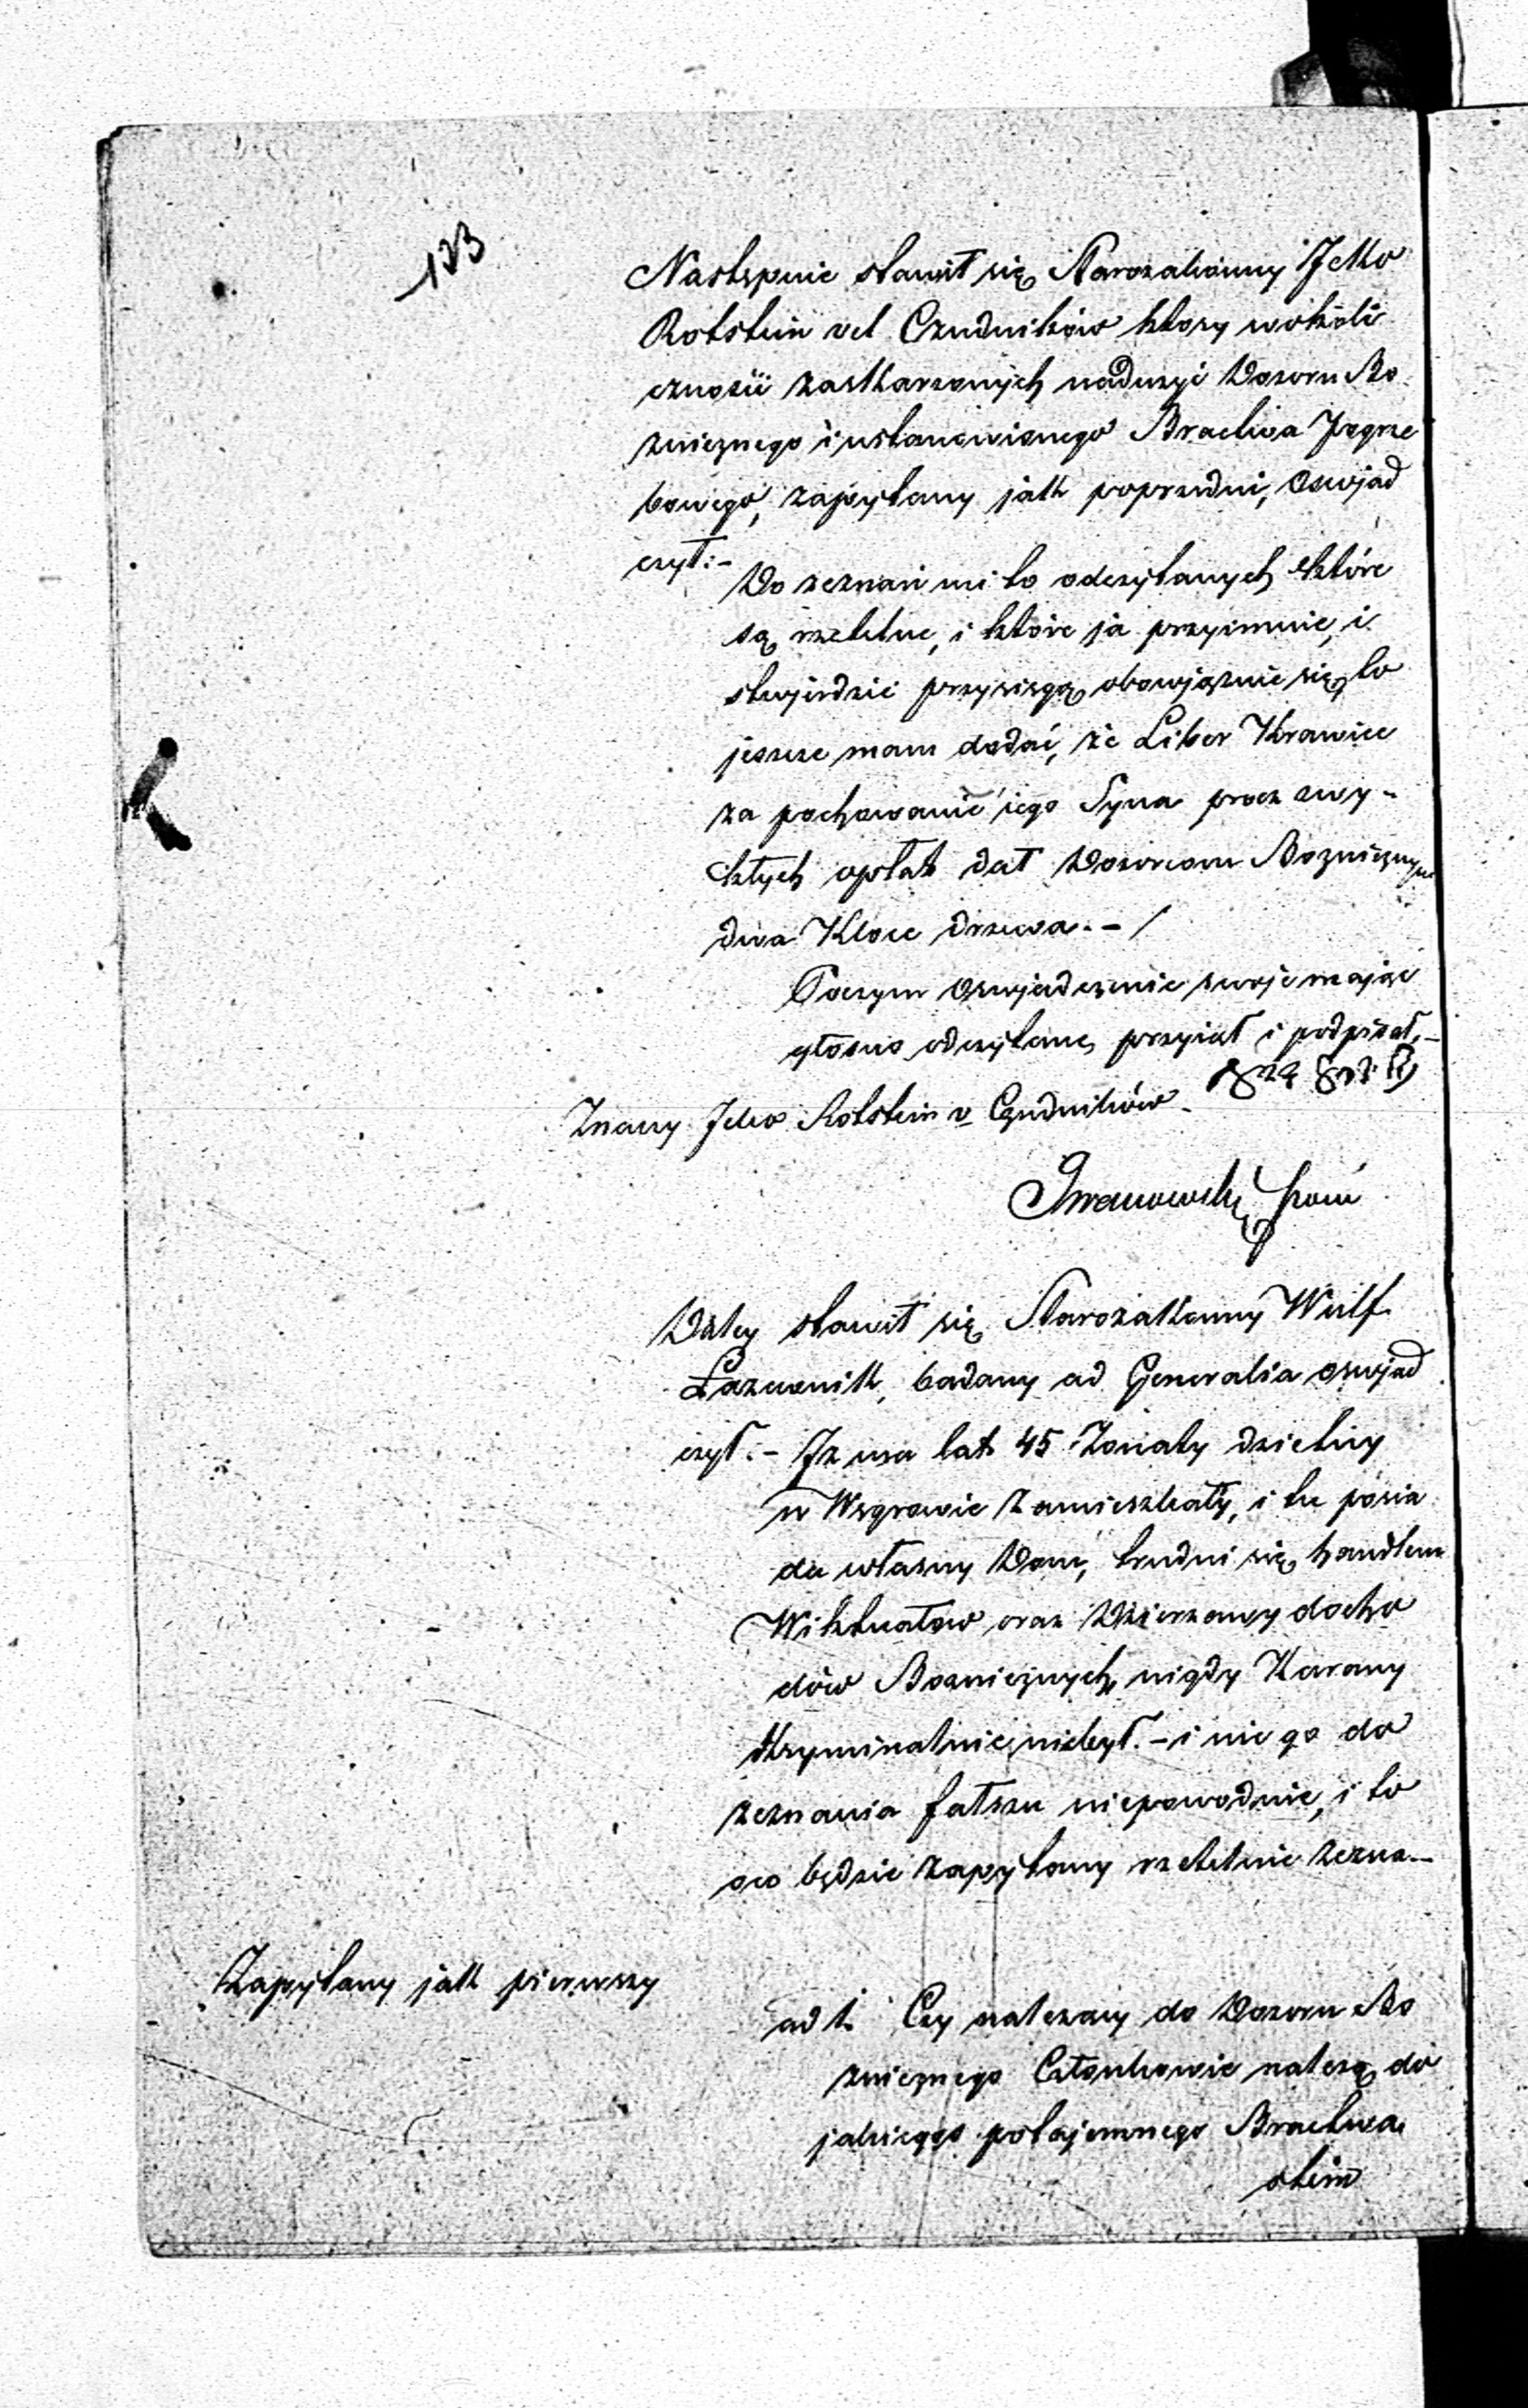 133
Następnie stawił się Starozakonny Icko
Rotstein vel Czudników ktory wokoli
cznosii zaskarzonych naduzyć Dozoru Bo
zniczego i ustanowionego Bractwa Pogrze
bowego, zapytany jak poprzedni, oswjad
czył:-
Do zeznań mi to odczytanych które
są rzetelne, i które ja przyimuie, i
stwjerdzić przysięgą obowjązuie się, to
jeszcze mam dodać, że Liber Krawiec
za pochowanie iego Syna procz zwy-
kłych opłat dał Dozorcom Boznicznym
dwa Kloce drzewa.-/
Poczym oswjadczenie swoje mając
głosno odczytane, przyiał i podpisał.-
Znany Icko Rotstein v Czudników-
Daley stawił się Starozakonny Wulf
Łazewnik, badany ad Generalia oswjad
czył.- Iz ma lat 45 Zonaty dzietny
w Węgrowie Zamieszkały, i tu posia
da własny Dom, trudni się handlem
Wiktuałow oraz Dzierzawy docho
dów Bozniczych, nigdy Karany
Kryminalnie niebył.- i nic go do
zeznania fałszu niepowoduie, i to
oco będzie zapytany rzetelnie zezna.-
Zapytany jak pierwszy
ad 1. Czy nalezący do Dozoru Bo
zniczego Członkowie nalezą do
jakiegos potajemnego Bractwa